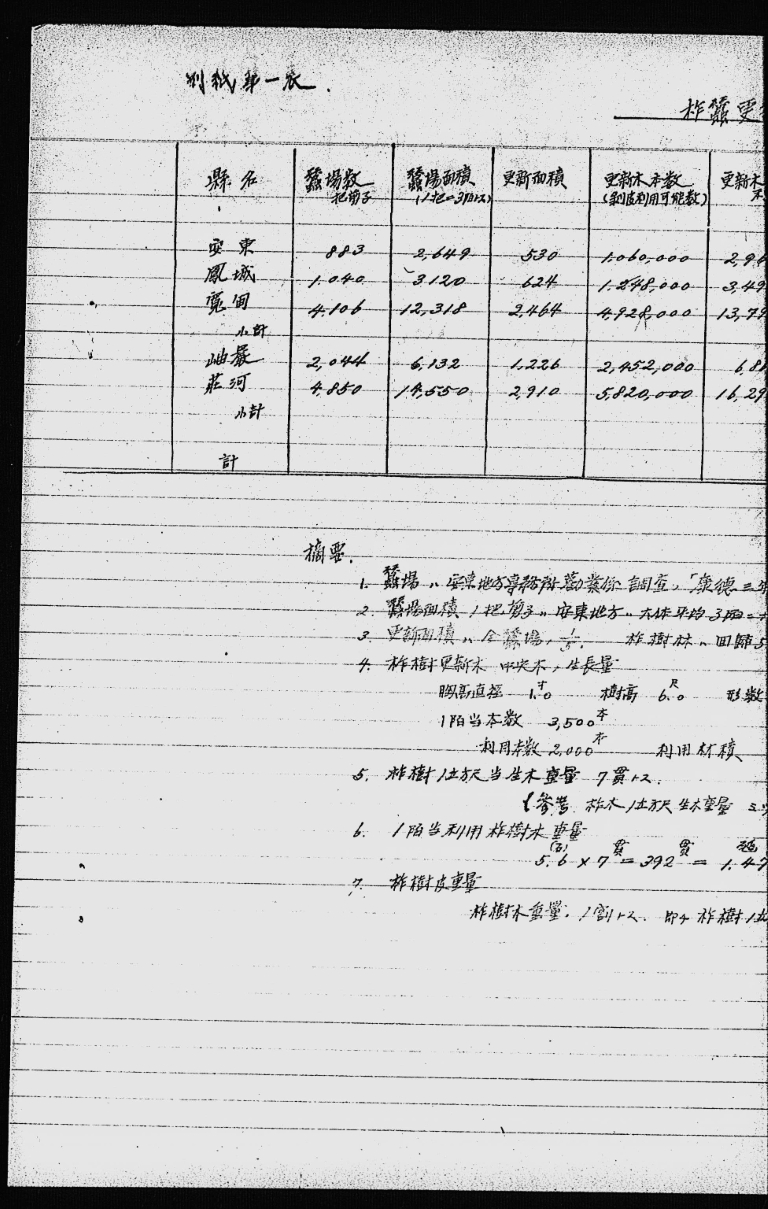 別紙第一表.
柞蚕更
縣名 蚕場数 蚕場面積 更新面積 更新木本数 更新木
把剪子 (1把=3陌トス) (剝皮利用可能数)
安東 883 2,649 530 1,060,000 2,9
鳳城 1,040 3,120 624 1,248,000 3,49
寬甸 4,106 12,318 2,464 4,928,000 13,79
小計
岫巖 2,044 6,132 1,226 2,452,000 6,8
莊河 4,850 14,550 2,910 5,820,000 16,29
小計
計
摘要.
1. 蚕場ハ安東地方事務所勸業係調査,「康德三年
2. 蚕場面積1把剪子ハ安東地方ハ大体平均3陌
3. 更新面積ハ全蚕場ノ1/5. 柞樹林ハ回歸5
4. 柞樹更新木中央木ノ生長量
胸高直徑 1.0寸 樹高 6.0尺 形数
1陌当本数 3,500本
利用本数 2,000本 利用材積
5. 柞樹1立方尺当生木重量 7貫トス.
(参考 柞木1立方尺生木重量
6. 1陌当利用柞樹木重量
5.6(石) × 7貫 = 392貫 = 1.47
7. 柞樹皮重量
柞樹木重量ノ1割トス. 即チ柞樹1立